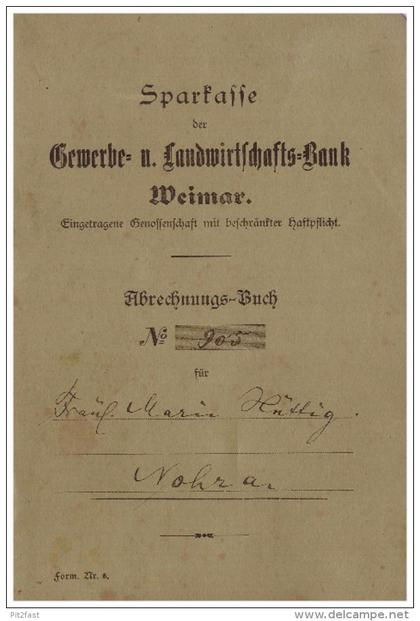 Sparkasse
der
Gewerbe- u. Landwirtschafts-Bank
Weimar.
Eingetragene Genossenschaft mit beschränkter Haftpflicht.
Abrechnungs-Buch
No 905
für
Fräul. Marie Hüttig.
Nohra.
Form. Nr. 6.
Pit2fast
delcampe.net